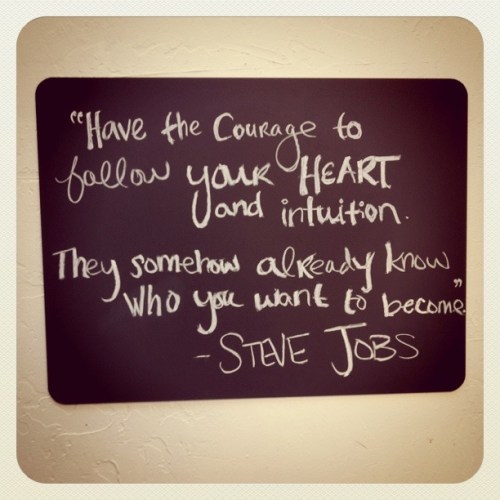 "Have the Courage to
follow your HEART
and intuition.
They somehow already know
who you want to become."
- STEVE JOBS